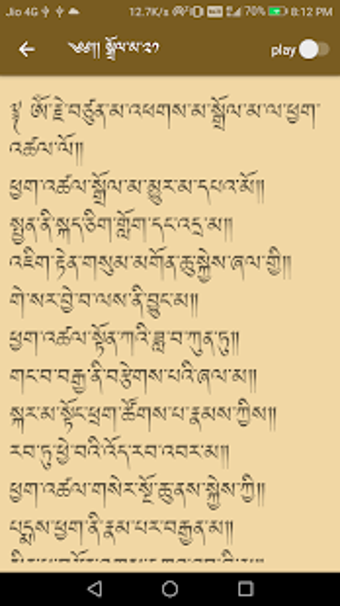 Jio 4G 12.7K/s 70% 8:12 PM
༄༅།། སྒྲོལ་མ་༢༡ play
༈ ཨོཾ་རྗེ་བཙུན་མ་འཕགས་མ་སྒྲོལ་མ་ལ་ཕྱག་
འཚལ་ལོ།།
ཕྱག་འཚལ་སྒྲོལ་མ་མྱུར་མ་དཔའ་མོ།།
སྤྱན་ནི་སྐད་ཅིག་གློག་དང་འདྲ་མ།།
འཇིག་རྟེན་གསུམ་མགོན་ཆུ་སྐྱེས་ཞལ་གྱི།།
གེ་སར་བྱེ་བ་ལས་ནི་བྱུང་མ།།
ཕྱག་འཚལ་སྟོན་ཀའི་ཟླ་བ་ཀུན་ཏུ།།
གང་བ་བརྒྱ་ནི་བརྩེགས་པའི་ཞལ་མ།།
སྐར་མ་སྟོང་ཕྲག་ཚོགས་པ་རྣམས་ཀྱིས།།
རབ་ཏུ་ཕྱེ་བའི་འོད་རབ་འབར་མ།།
ཕྱག་འཚལ་གསེར་སྔོ་ཆུ་ནས་སྐྱེས་ཀྱི།།
པདྨས་ཕྱག་ནི་རྣམ་པར་བརྒྱན་མ།།